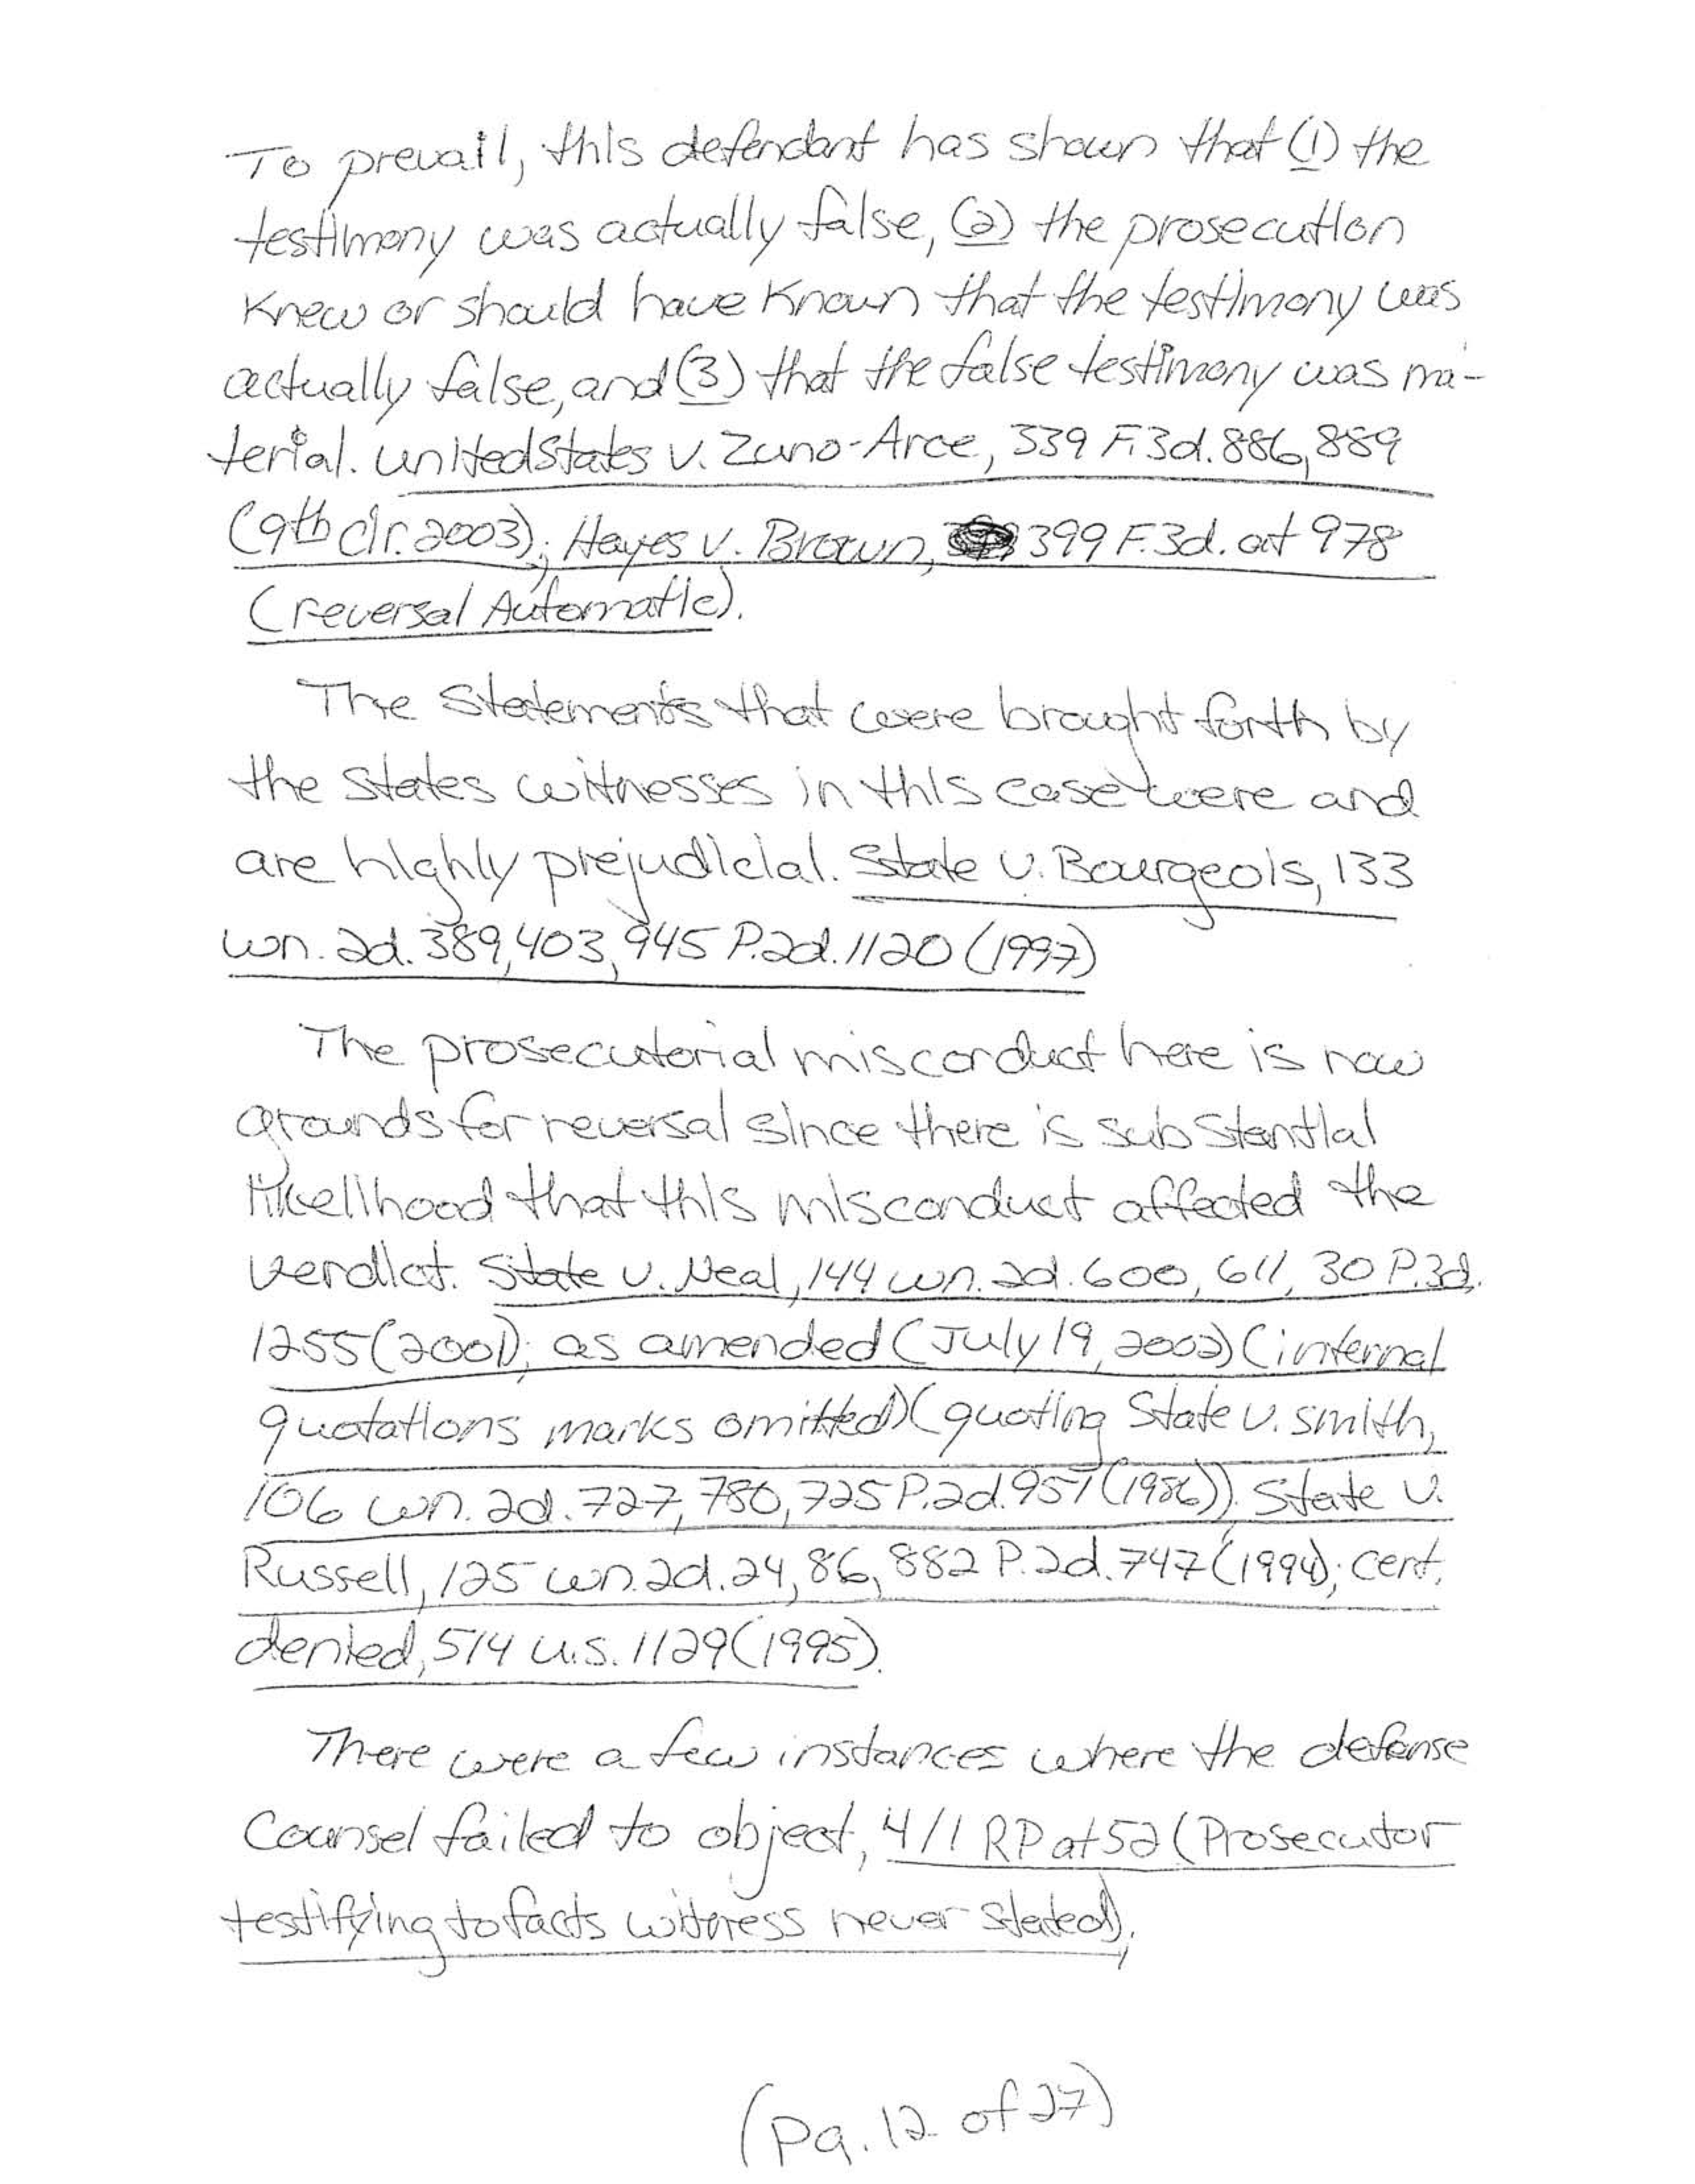 To prevail, this defendant has shown that (1) the
testimony was actually false, (2) the prosecution
Knew or should have Known that the testimony was
actually false, and (3) that the false testimony was ma-
terial. United States v. Zuno-Arce, 339 F.3d. 886, 889
(9th cir. 2003); Hayes v. Brown, 399 F.3d. at 978
(reversal Automatic).
The Statements that were brought forth by
the States witnesses in this case were and
are highly prejudicial. State v. Bourgeois, 133
wn. 2d. 389, 403, 945 P.2d. 1120 (1997)
The prosecutorial misconduct here is now
grounds for reversal since there is substantial
likelihood that this misconduct affected the
verdict. State v. Neal, 144 wn. 2d. 600, 611, 30 P.3d.
1255 (2001); as amended (July 19, 2002) (internal
quotations marks omitted) (quoting State v. smith,
106 wn. 2d. 727, 780, 725 P.2d. 951 (1986)). State v.
Russell, 125 wn. 2d. 24, 86, 882 P.2d. 747 (1994); cert.
denied, 514 U.S. 1129 (1995).
There were a few instances where the defense
Counsel failed to object, 4/1 RP at 52 (Prosecutor
testifying to facts witness never stated),
(Pg. 12 of 27)